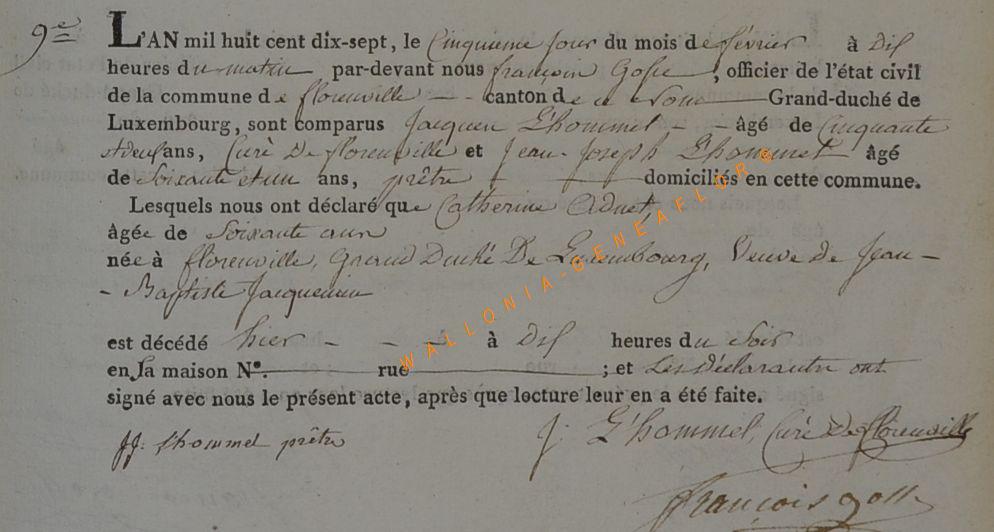 9e
L'AN mil huit cent dix-sept, le Cinquieme jour du mois de février à Dix
heures du matin par-devant nous françois Gosse, officier de l'état civil
de la commune de florenville - - canton de ce Nom Grand-duché de
Luxembourg, sont comparus Jacques L'hommel, - - âgé de Cinquante
ans, Curé De florenville et Jean-Joseph L'hommel âgé
de Soixante et un ans, prêtre domiciliés en cette commune.
Lesquels nous ont déclaré que Catherine Adnet,
âgée de Soixante ans
née à florenville, Grand Duché De Luxembourg, Veuve de Jean -
- Baptiste Jacquemin
est décédé hier - - - à Dix heures du Soir
en sa maison N°. rue ; et Les Déclarants ont
signé avec nous le présent acte, après que lecture leur en a été faite.
JJ: L'hommel prêtre
J: L'hommel, Curé De florenville
françois goss
WALLONIA-GENEAFLOR©